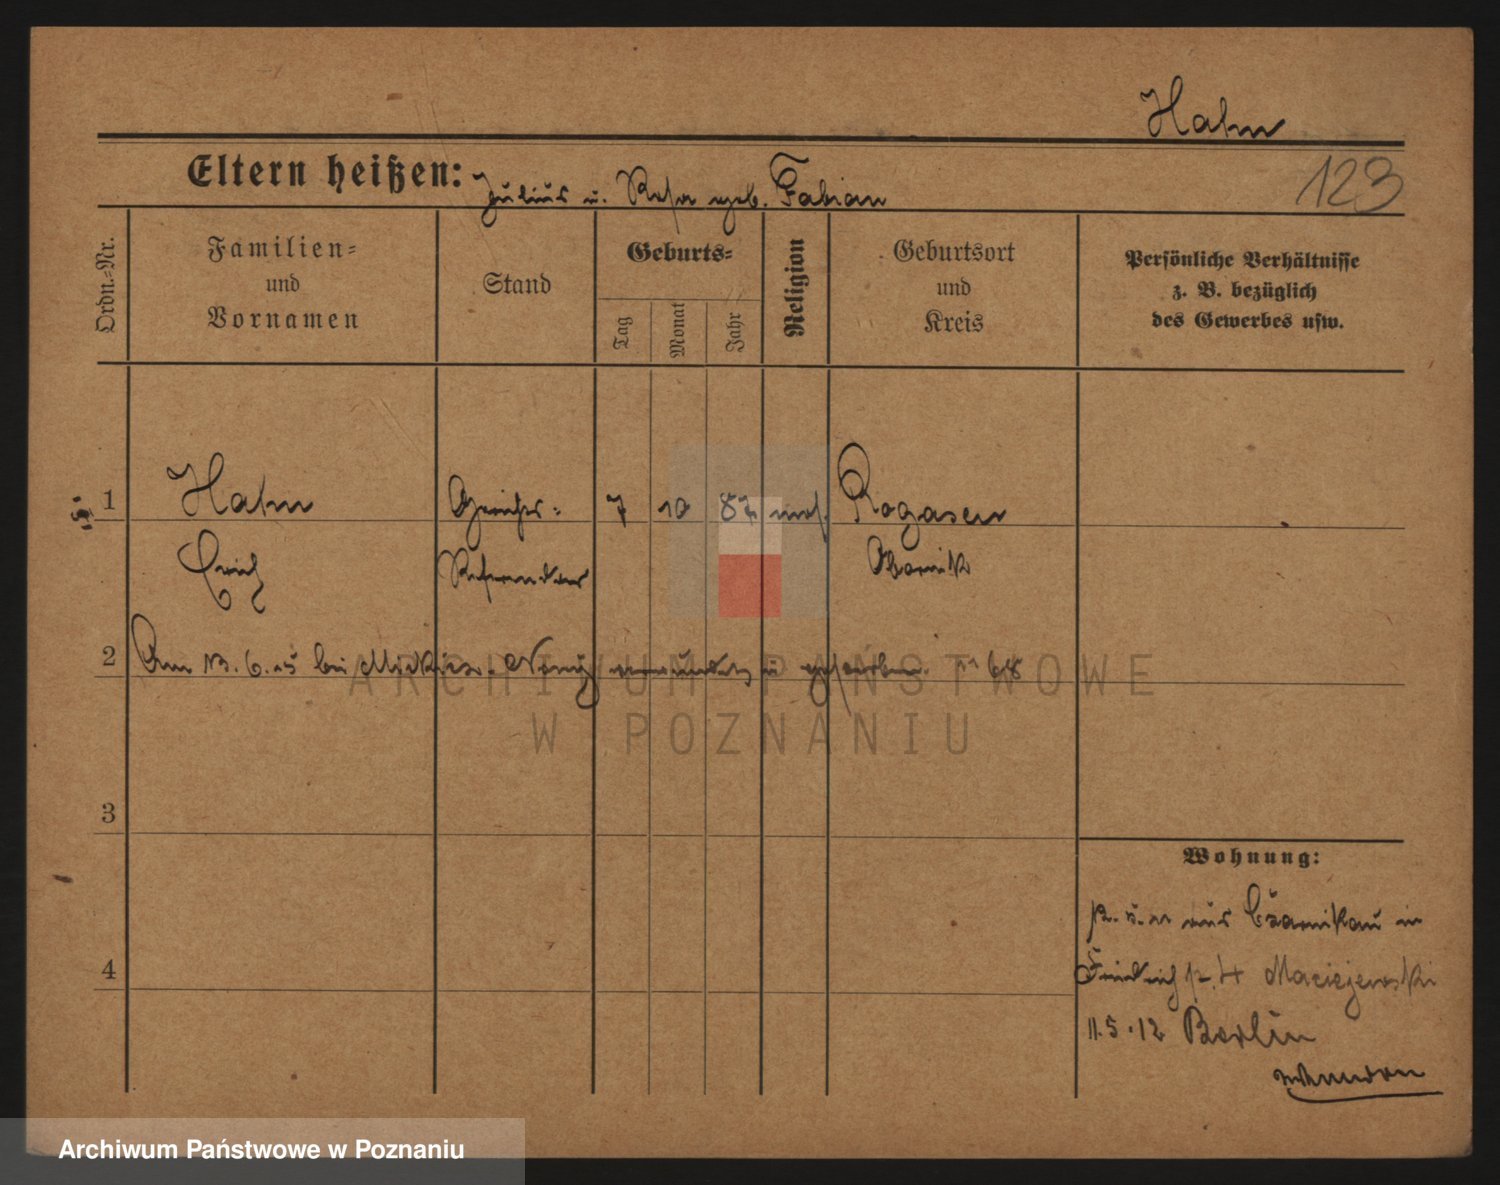 Hahn
Eltern heißen: Julius u. Rosa geb. Fabian
123
Ordn.-Nr.
Familien-
und
Vornamen
Stand
Geburts-
Tag
Monat
Jahr
Religion
Geburtsort
und
Kreis
Persönliche Verhältnisse
z. B. bezüglich
des Gewerbes usw.
1 Hahn Gerichts- 7 10 87 mos. Rogasen
Erich Referendar Obornik
2 Am 13. 6. 15 bei verwundet u gestorben.
ARCHIWUM PAŃSTWOWE
W POZNANIU
3
4
Wohnung:
aus Czarnikau in
Maciejewski
11.5.12 Berlin
Archiwum Państwowe w Poznaniu